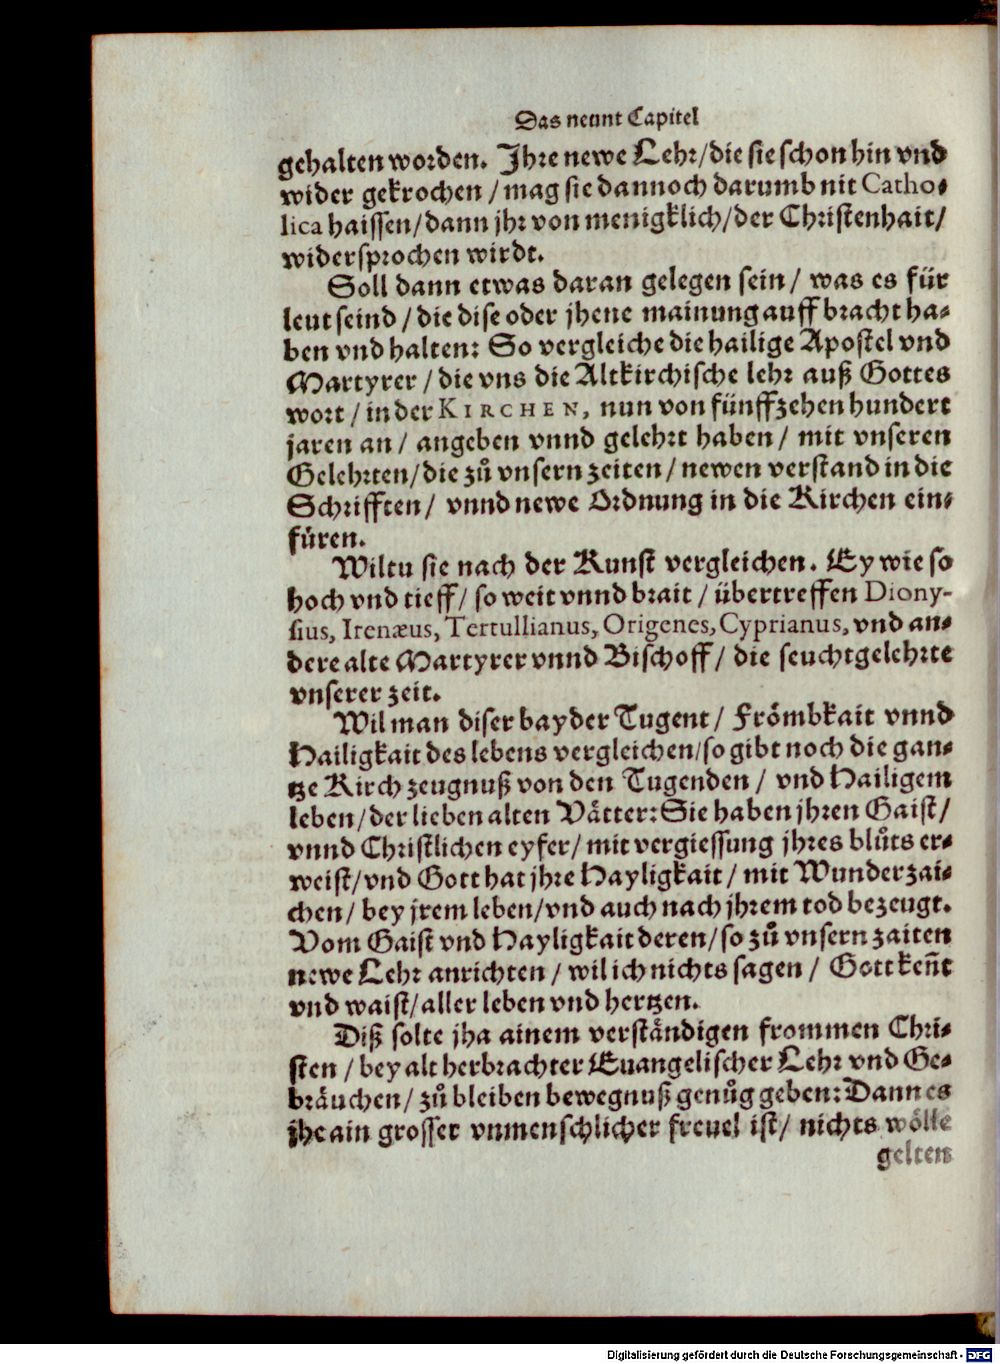 Das neunt Capitel
gehalten worden. Jhre newe Lehr/die sie schon hin vnd
wider gekrochen / mag sie dannoch darumb nit Catho-
lica haissen/dann jhr von menigklich/der Christenhait/
widersprochen wirdt.
Soll dann etwas daran gelegen sein / was es für
leut seind / die dise oder jhene mainung auff bracht ha-
ben vnd halten: So vergleiche die hailige Apostel vnd
Martyrer / die vns die Altkirchische lehr auß Gottes
wort / in der KIRCHEN, nun von fünffzehen hundert
jaren an / angeben vnnd gelehrt haben / mit vnseren
Gelehrten/die zů vnsern zeiten / newen verstand in die
Schrifften / vnnd newe Ordnung in die Kirchen ein-
füren.
Wiltu sie nach der Kunst vergleichen. Ey wie so
hoch vnd tieff / so weit vnnd brait / übertreffen Diony-
sius, Irenæus, Tertullianus, Origenes, Cyprianus, vnd an-
dere alte Martyrer vnnd Bischoff / die seuchtgelehrte
vnserer zeit.
Wil man diser bayder Tugent / Frömbkait vnnd
Hailigkait des lebens vergleichen/so gibt noch die gan-
tze Kirch zeugnuß von den Tugenden / vnd Hailigem
leben/der lieben alten Vätter: Sie haben jhren Gaist/
vnnd Christlichen eyfer/ mit vergiessung jhres blůts er-
weist/vnd Gott hat jhre Hayligkait / mit Wunderzai-
chen / bey jrem leben/vnd auch nach jhrem tod bezeugt.
Vom Gaist vnd Hayligkait deren/so zů vnsern zaiten
newe Lehr anrichten / wil ich nichts sagen / Gott keñt
vnd waist/aller leben vnd hertzen.
Diß solte jha ainem verständigen frommen Chri-
sten / bey alt herbrachter Euangelischer Lehr vnd Ge-
bräuchen / zů bleiben bewegnuß genůg geben: Dann es
jhe ain grosser vnmenschlicher freuel ist/ nichts wölle
gelten
Digitalisierung gefördert durch die Deutsche Forschungsgemeinschaft - DFG